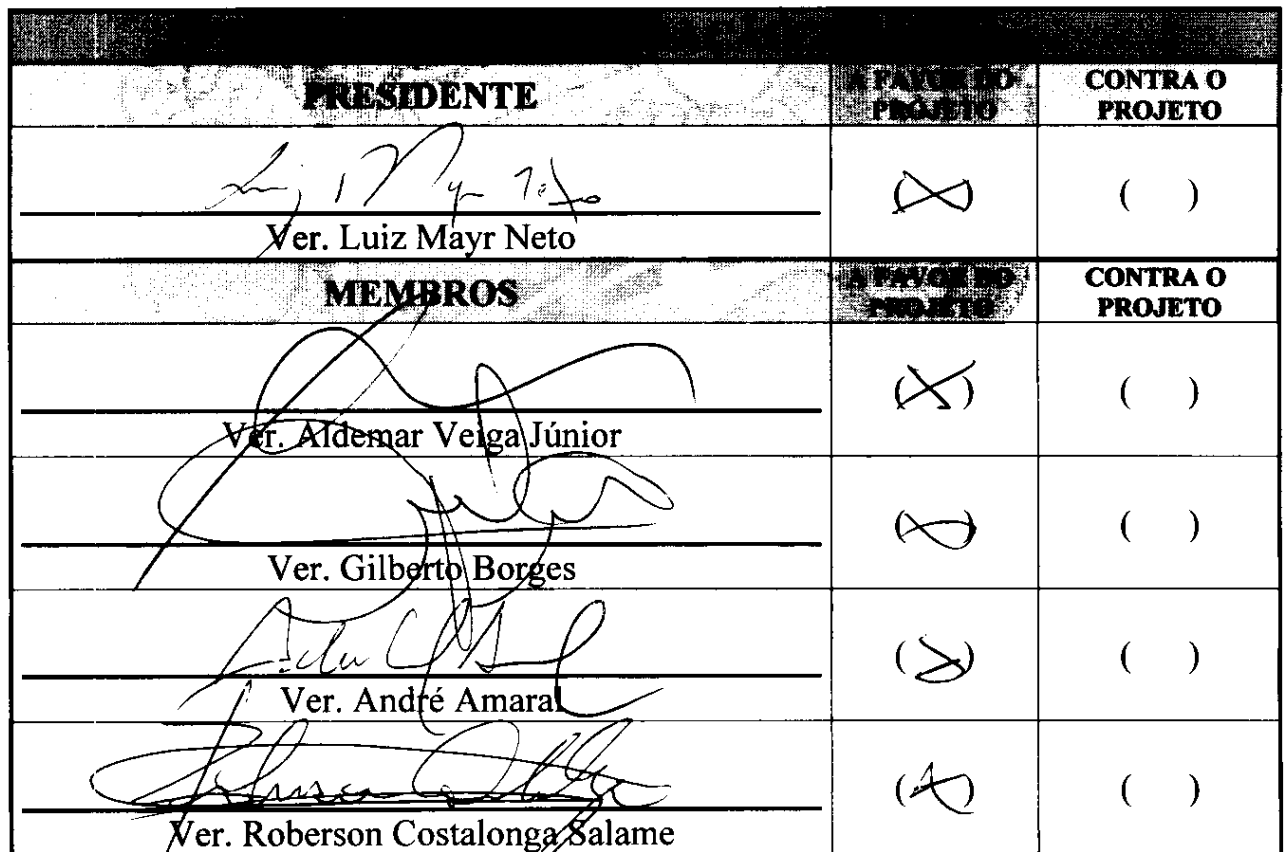 PRESIDENTE
A FAVOR DO
PROJETO
CONTRA O
PROJETO
Ver. Luiz Mayr Neto
( )
MEMBROS
A FAVOR DO
PROJETO
CONTRA O
PROJETO
Ver. Aldemar Veiga Júnior
(X)
( )
Ver. Gilberto Borges
( )
Ver. André Amaral
( )
Ver. Roberson Costalonga Salame
( )